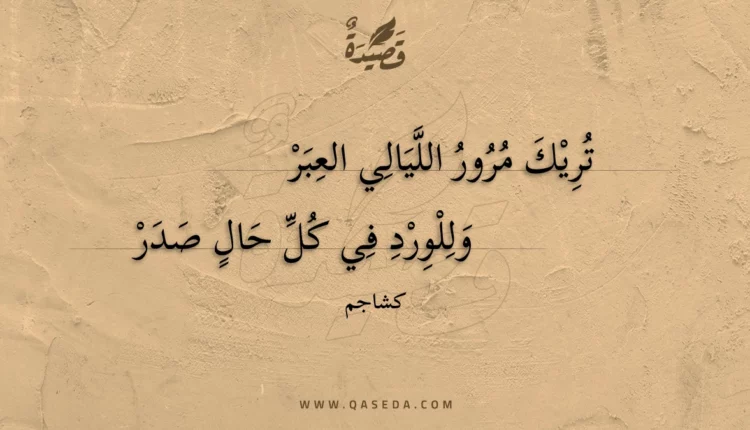 قَصِيدَةٌ
تُرِيْكَ مُرُورُ اللَّيَالِي العِبَرْ
وَلِلْوِرْدِ فِي كُلِّ حَالٍ صَدَرْ
كشاجم
WWW.QASEDA.COM